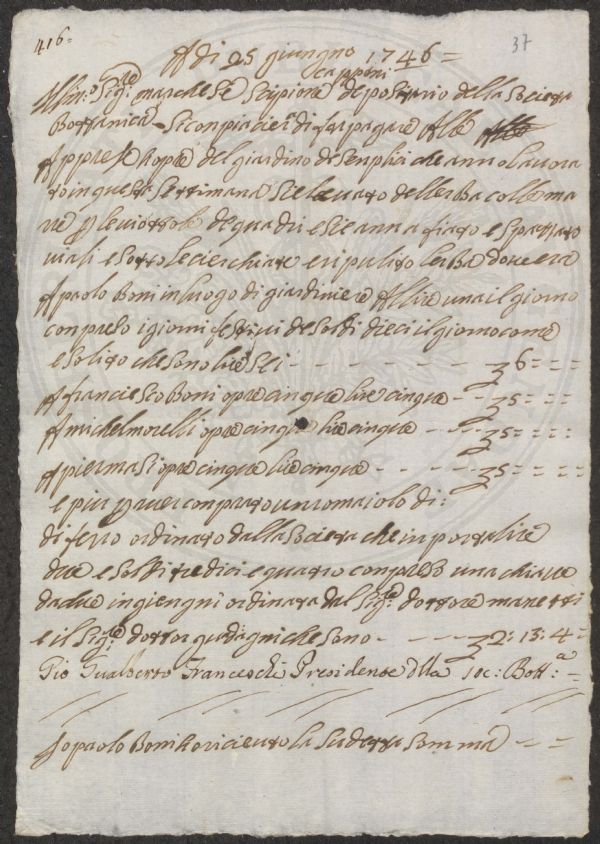 416=
37
Adi 25 giungno 1746=
capponi
Illin.o Sig.re marchese Scipione depositario della Società
Bottanica Si conpiacie.rà di far pagare Alle
Appresso hopre del giardino de Senplici che anno lavora
to in questa Settimana Si è levato dell erba colle ma
ne p le viottole de quadri e Si e anna fiato e Spazzato
viali e Sotto le cierchiate e ripulito lerba dove era
A paolo Boni in luogo di giardiniere A lire una il giorno
conpreso i giorni festivi de Soldi dieci il giorno come
e Solito che Sono lire Sei - - - - - - - 6 = = =
A franciesco Boni opre cinque lire cinque - - 5 = = = :
A michel morelli opre cinque lire cinque - - - 5 = = = :
A pier masi opre cinque lire cinque - - - - - 5 = = = :
e piu p aver conprato un romaiolo di :
di ferro ordinato dalla Società che inporta lire
due e Soldi tredici e quatro conpreso una chiave
da due ingiengni ordinata dal Sig.re dottore manetti
e il Sig.re dottor guadagni che Sono - - - - - 2 : 13 : 4 =
Pio Gualberto Franceschi Presidente dlla Soc: Bott:a =
Io paolo Boni ho ricieuto la Sudetta Somma - - =